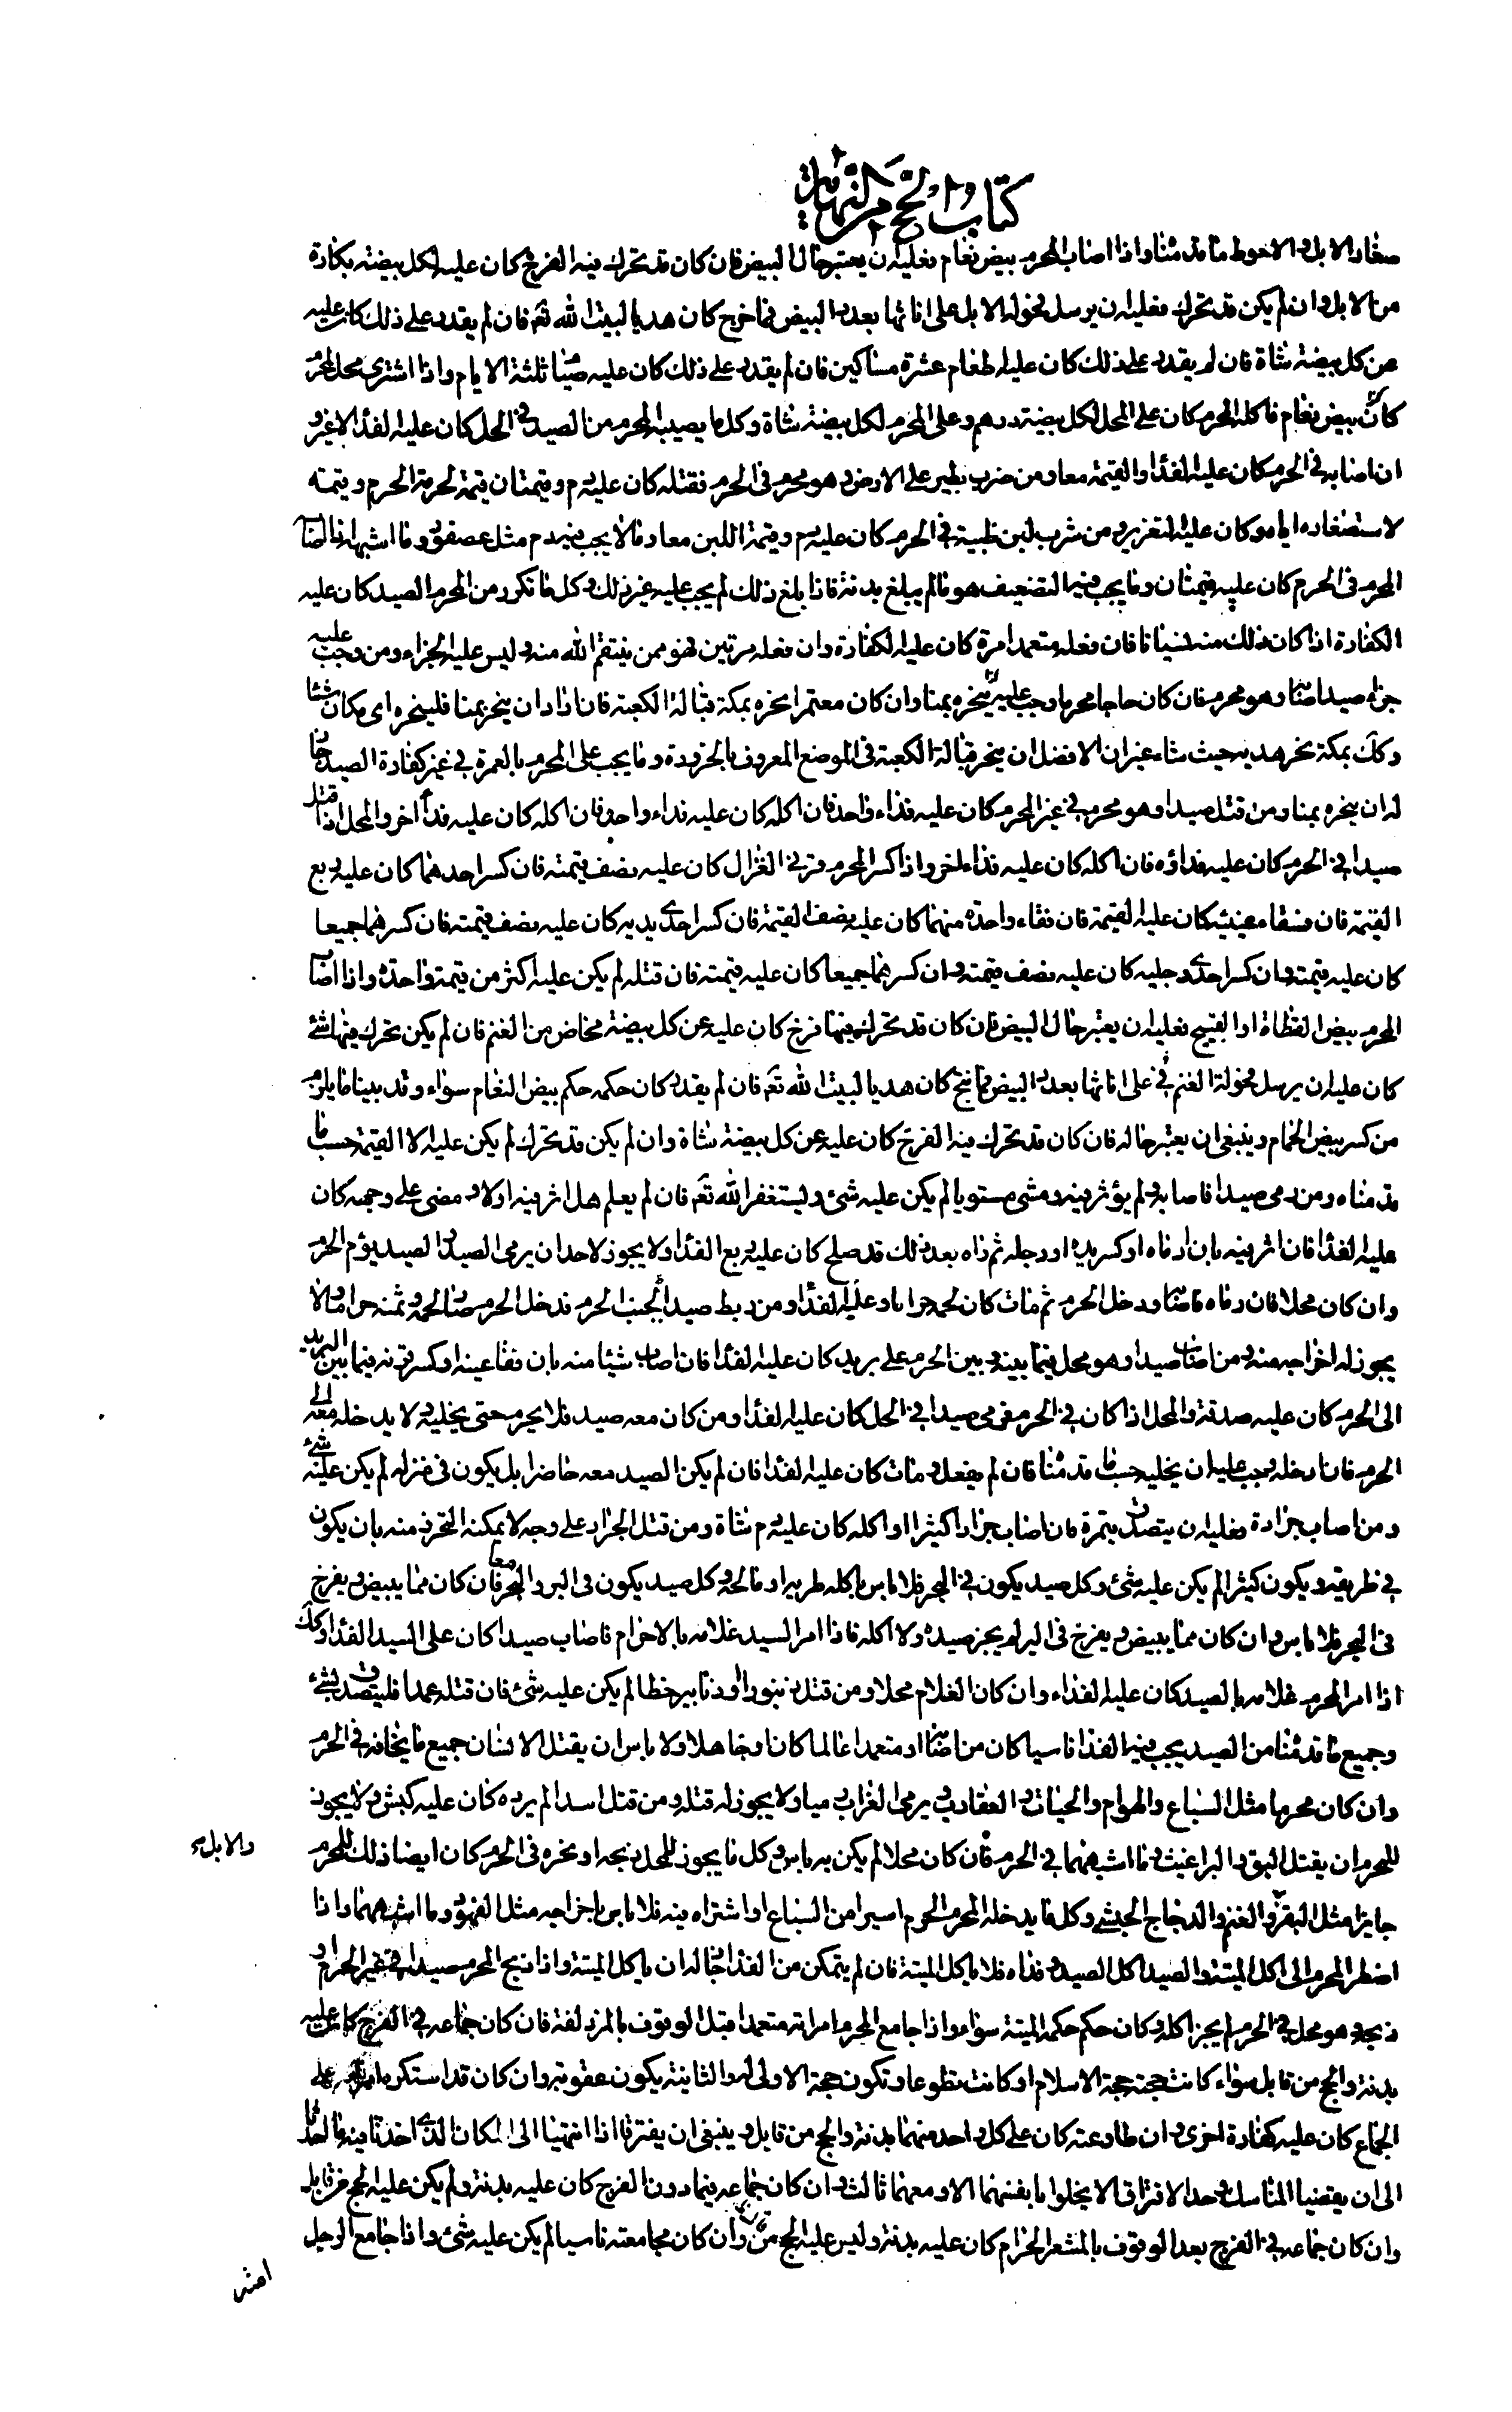 كتاب الحج من النهاية
صغار الابل والاحوط ما قدمناه واذا اصاب المحرم بيض نعام فعليه ان يعتبر حال البيض فان كان قد تحرك فيه الفرخ كان عليه لكل بيضة بكارة
من الابل وان لم يكن قد تحرك فعليه ان يرسل فحولة الابل على اناثها بعدد البيض فما خرج كان هديا لبيت الله تع فان لم يقدر على ذلك كان عليه
عن كل بيضة شاة فان لم يقدر على ذلك كان عليه اطعام عشرة مساكين فان لم يقدر على ذلك كان عليه صيام ثلثة الايام واذا اشترى محل لمحرم
بيض نعام فاكله المحرم كان على المحل لكل بيضة درهم وعلى المحرم لكل بيضة شاة وكل ما يصيبه المحرم من الصيد في الحل كان عليه الفداء لا غير و
ان اصابه في الحرم كان عليه الفداء والقيمة معا ومن ضرب بطير على الارض وهو محرم في الحرم فقتله كان عليه دم وقيمتان قيمة لحرمة الحرم وقيمته
لاستصغاره اياه وكان عليه التعزير ومن شرب لبن ظبية في الحرم كان عليه دم وقيمة اللبن معا وما لا يجب فيه دم مثل عصفور وما اشبهه اذا اصابه
المحرم في الحرم كان عليه قيمتان وما يجب فيه التضعيف هو ما لم يبلغ بدنة فاذا بلغ ذلك لم يجب عليه غير ذلك وكل ما تكرر من المحرم الصيد كان عليه
الكفارة اذا كان ذلك منه نسيانا فان فعله متعمدا مرة كان عليه الكفارة وان فعله مرتين فهو ممن ينتقم الله منه وليس عليه الجزاء ومن وجب عليه
جزاء صيد اصابه وهو محرم فان كان حاجا نحر ما وجب عليه بمنا وان كان معتمرا نحره بمكة قبالة الكعبة فان اراد ان ينحر بمنا فلينحره اي مكان شاء
وكك بمكة ينحر هديه حيث شاء غير ان الافضل ان ينحر قبالة الكعبة في الموضع المعروف بالحزورة وما يجب على المحرم بالعمرة في غير كفارة الصيد جاز
له ان ينحره بمنا ومن قتل صيدا وهو محرم في غير الحرم كان عليه فداء واحد فان اكله كان عليه فداء اخر والمحل اذا قتل
صيدا في الحرم كان عليه فداؤه فان اكله كان عليه فداء اخر واذا كسر المحرم قرني الغزال كان عليه نصف قيمته فان كسر احدهما كان عليه ربع
القيمة فان فقاء عينيه كان عليه القيمة فان فقاء واحدة منهما كان عليه نصف القيمة فان كسر احدى يديه كان عليه نصف قيمته فان كسرهما جميعا
كان عليه قيمته وان كسر احدى رجليه كان عليه نصف قيمته وان كسرهما جميعا كان عليه قيمته فان قتله لم يكن عليه اكثر من قيمة واحدة واذا اصاب
المحرم بيض القطاة او القبج فعليه ان يعتبر حال البيض فان كان قد تحرك فيها فرخ كان عليه عن كل بيضة مخاض من الغنم فان لم يكن تحرك فيها شئ
كان عليه ان يرسل فحولة الغنم على اناثها بعدد البيض فما نتج كان هديا لبيت الله تع فان لم يقدر كان حكمه حكم بيض النعام سواء وقد بينا ما يلزم
من كسر بيض الحمام وينبغي ان يعتبر حاله فان كان قد تحرك فيه الفرخ كان عليه عن كل بيضة شاة وان لم يكن قد تحرك لم يكن عليه الا القيمة حسب ما
قدمناه ومن رمى صيدا فاصابه ولم يؤثر فيه ومشى مستويا لم يكن عليه شئ وليستغفر الله تع فان لم يعلم هل اثر فيه ام لا ومضى على وجهه كان
عليه الفداء فان اثر فيه بان ادماه او كسر يده او رجله ثم راه بعد ذلك قد صلح كان عليه ربع الفداء ولا يجوز لاحد ان يرمى الصيد والصيد يؤم الحرم
وان كان محلا فان رماه فاصابه ودخل الحرم ثم مات كان لحمه حراما وعليه الفداء ومن ربط صيدا بجنب الحرم فدخل الحرم صار لحمه وثمنه حراما ولا
يجوز له اخراجه منه ومن اصاب صيدا وهو محل فيما بينه وبين الحرم على بريد كان عليه الفداء فان اصاب شيئا منه بان فقا عينه او كسر قرنه فيما بين البريد
الى الحرم كان عليه صدقة والمحل اذا كان في الحرم فرمى صيدا في الحل كان عليه الفداء ومن كان معه صيد فلا يحرم حتى يخليه ولا يدخله معه الى
الحرم فان ادخله وجب عليه ان يخليه حسب ما قدمنا فان لم يفعل ومات كان عليه الفداء فان لم يكن الصيد معه حاضرا بل يكون في منزله لم يكن عليه شئ
ومن اصاب جرادة فعليه ان يتصدق بتمرة فان اصاب جرادا كثيرا او اكله كان عليه دم شاة ومن قتل الجراد على وجه لا يمكنه التحرز منه بان يكون
في طريقه ويكون كثيرا لم يكن عليه شئ وكل صيد يكون في البحر فلا باس باكله طريه ومالحه وكل صيد يكون في البر والبحر معا فان كان مما يبيض ويفرخ
في البحر فلا باس وان كان مما يبيض ويفرخ في البر لم يجز صيده ولا اكله فاذا امر السيد غلامه بالاحرام فاصاب صيدا كان على السيد الفداء وكك
اذا امر المحرم غلامه بالصيد كان عليه الفداء وان كان الغلام محلا ومن قتل زنبورا او زنابير خطأ لم يكن عليه شئ فان قتله عمدا فليتصدق بشئ
وجميع ما قدمنا من الصيد يجب فيه الفداء ناسيا كان من اصابه او متعمدا عالما كان او جاهلا ولا باس ان يقتل الانسان جميع ما يخافه في الحرم
وان كان محرما مثل السباع والهوام والحيات والعقارب ويرمى الغراب رميا ولا يجوز له قتله ومن قتل اسدا لم يرده كان عليه كبش ولا يجوز
للمحرم ان يقتل البق والبراغيث وما اشبههما في الحرم فان كان محلا لم يكن به باس وكل ما يجوز للمحل ذبحه او نحره في الحرم كان ايضا ذلك للمحرم
والابل
جايزا مثل البقر والغنم والدجاج الحبشي وكل ما يدخله المحرم الحرم اسيرا من السباع او اشتراه فيه فلا باس باخراجه مثل الفهود وما اشبههما واذا
اضطر المحرم الى اكل الميتة والصيد اكل الصيد وفداه ولا ياكل الميتة فان لم يتمكن من الفداء جاز له ان ياكل الميتة واذا ذبح المحرم صيدا في غير الحرم او
ذبحه وهو محل في الحرم لم يجز اكله وكان حكم حكم الميتة سواء واذا جامع المحرم امراته متعمدا قبل الوقوف بالمزدلفة فان كان جماعه في الفرج كان عليه
بدنة والحج من قابل سواء كانت حجته حجة الاسلام او كانت تطوعا وتكون حجة الاولى له والثانية يكون عقوبة وان كان قد استكره امراته على
الجماع كان عليه كفارة اخرى وان طاوعته كان على كل واحد منهما بدنة والحج من قابل وينبغي ان يفترقا اذا انتهيا الى المكان الذي احدثا فيه ما احدثا
الى ان يقضيا المناسك وحد الافتراق الا يخلوا بانفسهما الا ومعهما ثالث وان كان جماعه فيما دون الفرج كان عليه بدنة ولم يكن عليه الحج من قابل
وان كان جماعه في الفرج بعد الوقوف بالمشعر الحرام كان عليه بدنة وليس عليه الحج من وان كان مجامعته ناسيا لم يكن عليه شئ واذا جامع الرجل
امته